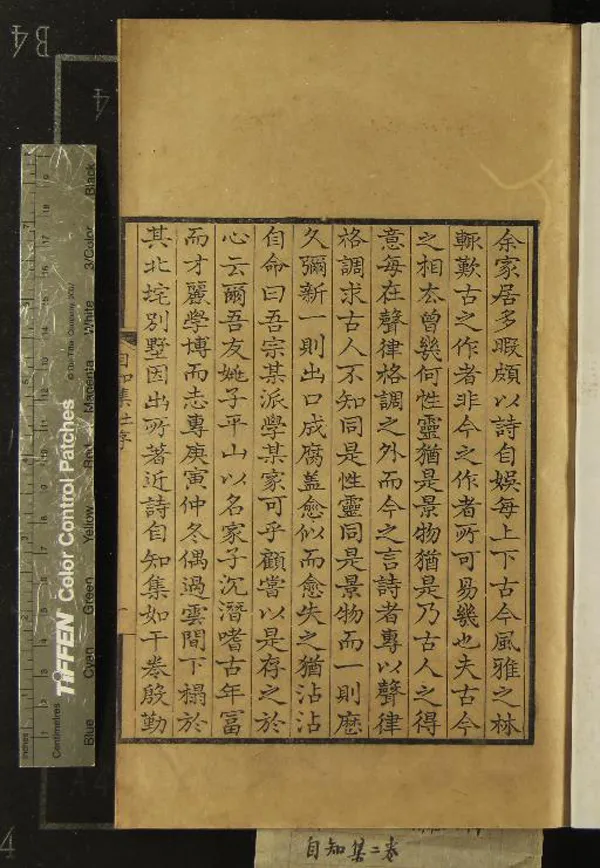 余家居多暇頗以詩自娛每上下古今風雅之林
輙歎古之作者非今之作者所可易幾也夫古今
之相去曾幾何性靈猶是景物猶是乃古人之得
意每在聲律格調之外而今之言詩者專以聲律
格調求古人不知同是性靈同是景物而一則歷
久彌新一則出口成腐蓋愈似而愈失之猶沾沾
自命曰吾宗某派學某家可乎顧嘗以是存之於
心云爾吾友姚子平山以名家子沉潛嗜古年富
而才麗學博而志專庚寅仲冬偶過雲間下榻於
其北垞別墅因出所著近詩自知集如干卷殷勤
自知集
一
自知集二卷
B4
4
TIFFEN Color Control Patches
© The Tiffen Company, 2007
Inches
Centimetres
Blue
Cyan
Green
Yellow
Red
Magenta
White
3/Color
Black